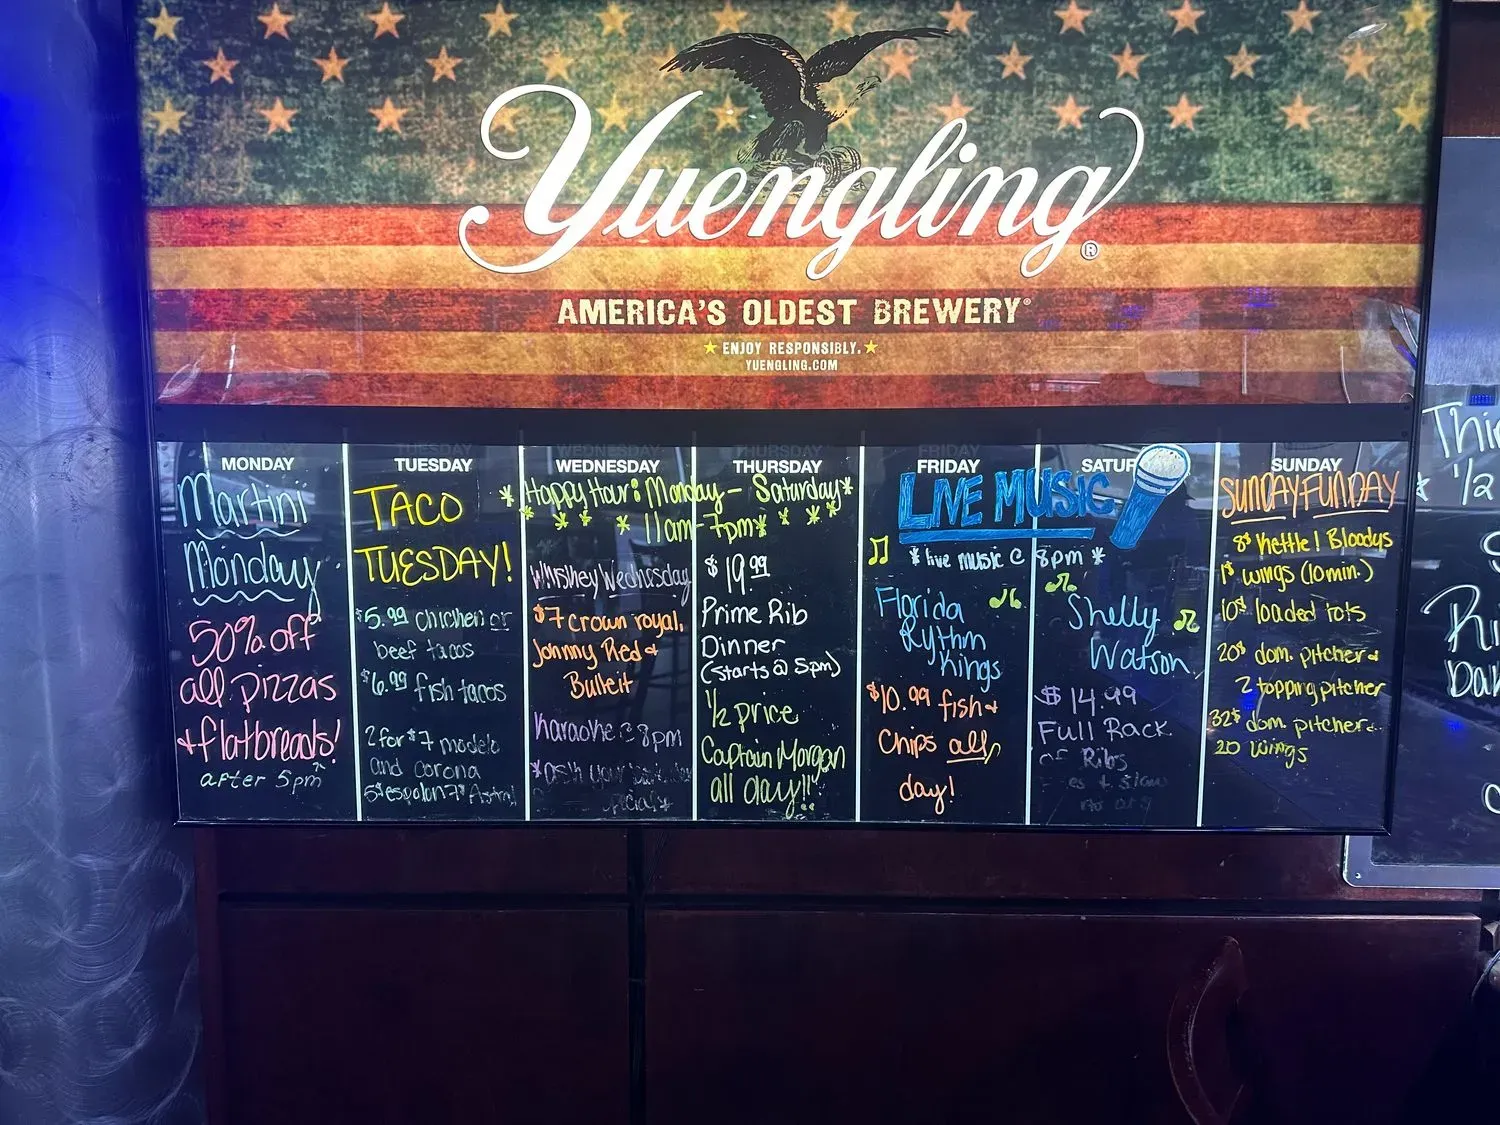 Yuengling®
AMERICA'S OLDEST BREWERY®
★ ENJOY RESPONSIBLY. ★
YUENGLING.COM
MONDAY
Martini
Monday
50% off
all pizzas
+ flatbreads!
after 5pm
TUESDAY
TACO
TUESDAY!
$5.99 chicken or
beef tacos
$6.99 fish tacos
2 for $7 modelo
and corona
5$ espolon 7$
WEDNESDAY
* Happy Hour: Monday - Saturday *
11am-7pm
Whiskey Wednesday
$7 crown royal,
Johnny Red +
Bulleit
Karaoke @ 8pm
*ask your
THURSDAY
$19.99
Prime Rib
Dinner
(starts @ 5pm)
1/2 price
Captain Morgan
all day!!
FRIDAY
LIVE MUSIC
* live music @ 8pm *
Florida
Rythm
Kings
$10.99 fish +
Chips all
day!
SATUR
Shelly
Watson
$14.99
Full Rack
of Ribs
SUNDAY
SUNDAY FUNDAY
8$ Kettle 1 Bloodys
1$ wings (10 min.)
10$ loaded tots
20$ dom. pitcher +
2 topping pitcher
32$ dom. pitcher +
20 wings
1/2